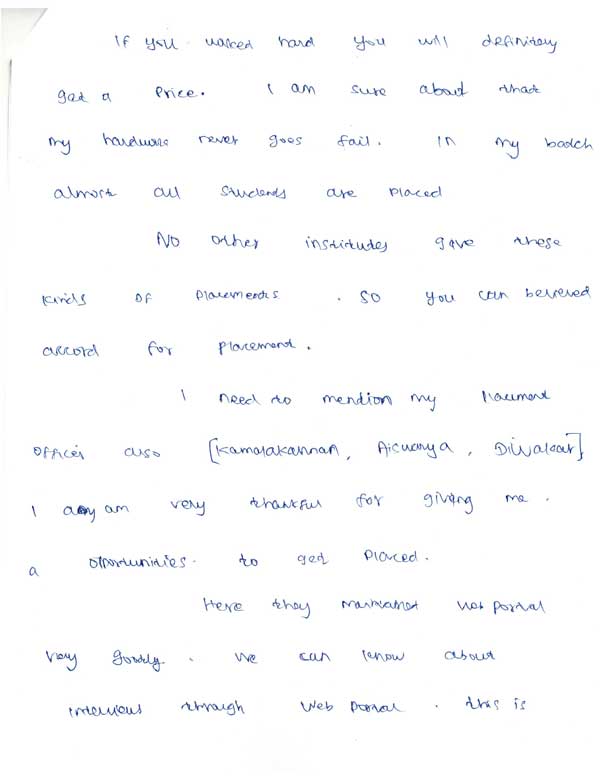 If you worked hard you will definitely
get a Price. I am sure about that
my hardware never goes fail. In my batch
almost all students are placed
No other institutes gave these
kinds of placements. so you can believed
accord for placement.
I need to mention my Placement
officer also [Kamalakannan, Aiswarya, Diwakar]
I am very thankful for giving me.
a opportunities. to get placed.
Here they web portal
very goodly. we can know about
interviews through web portal. this is